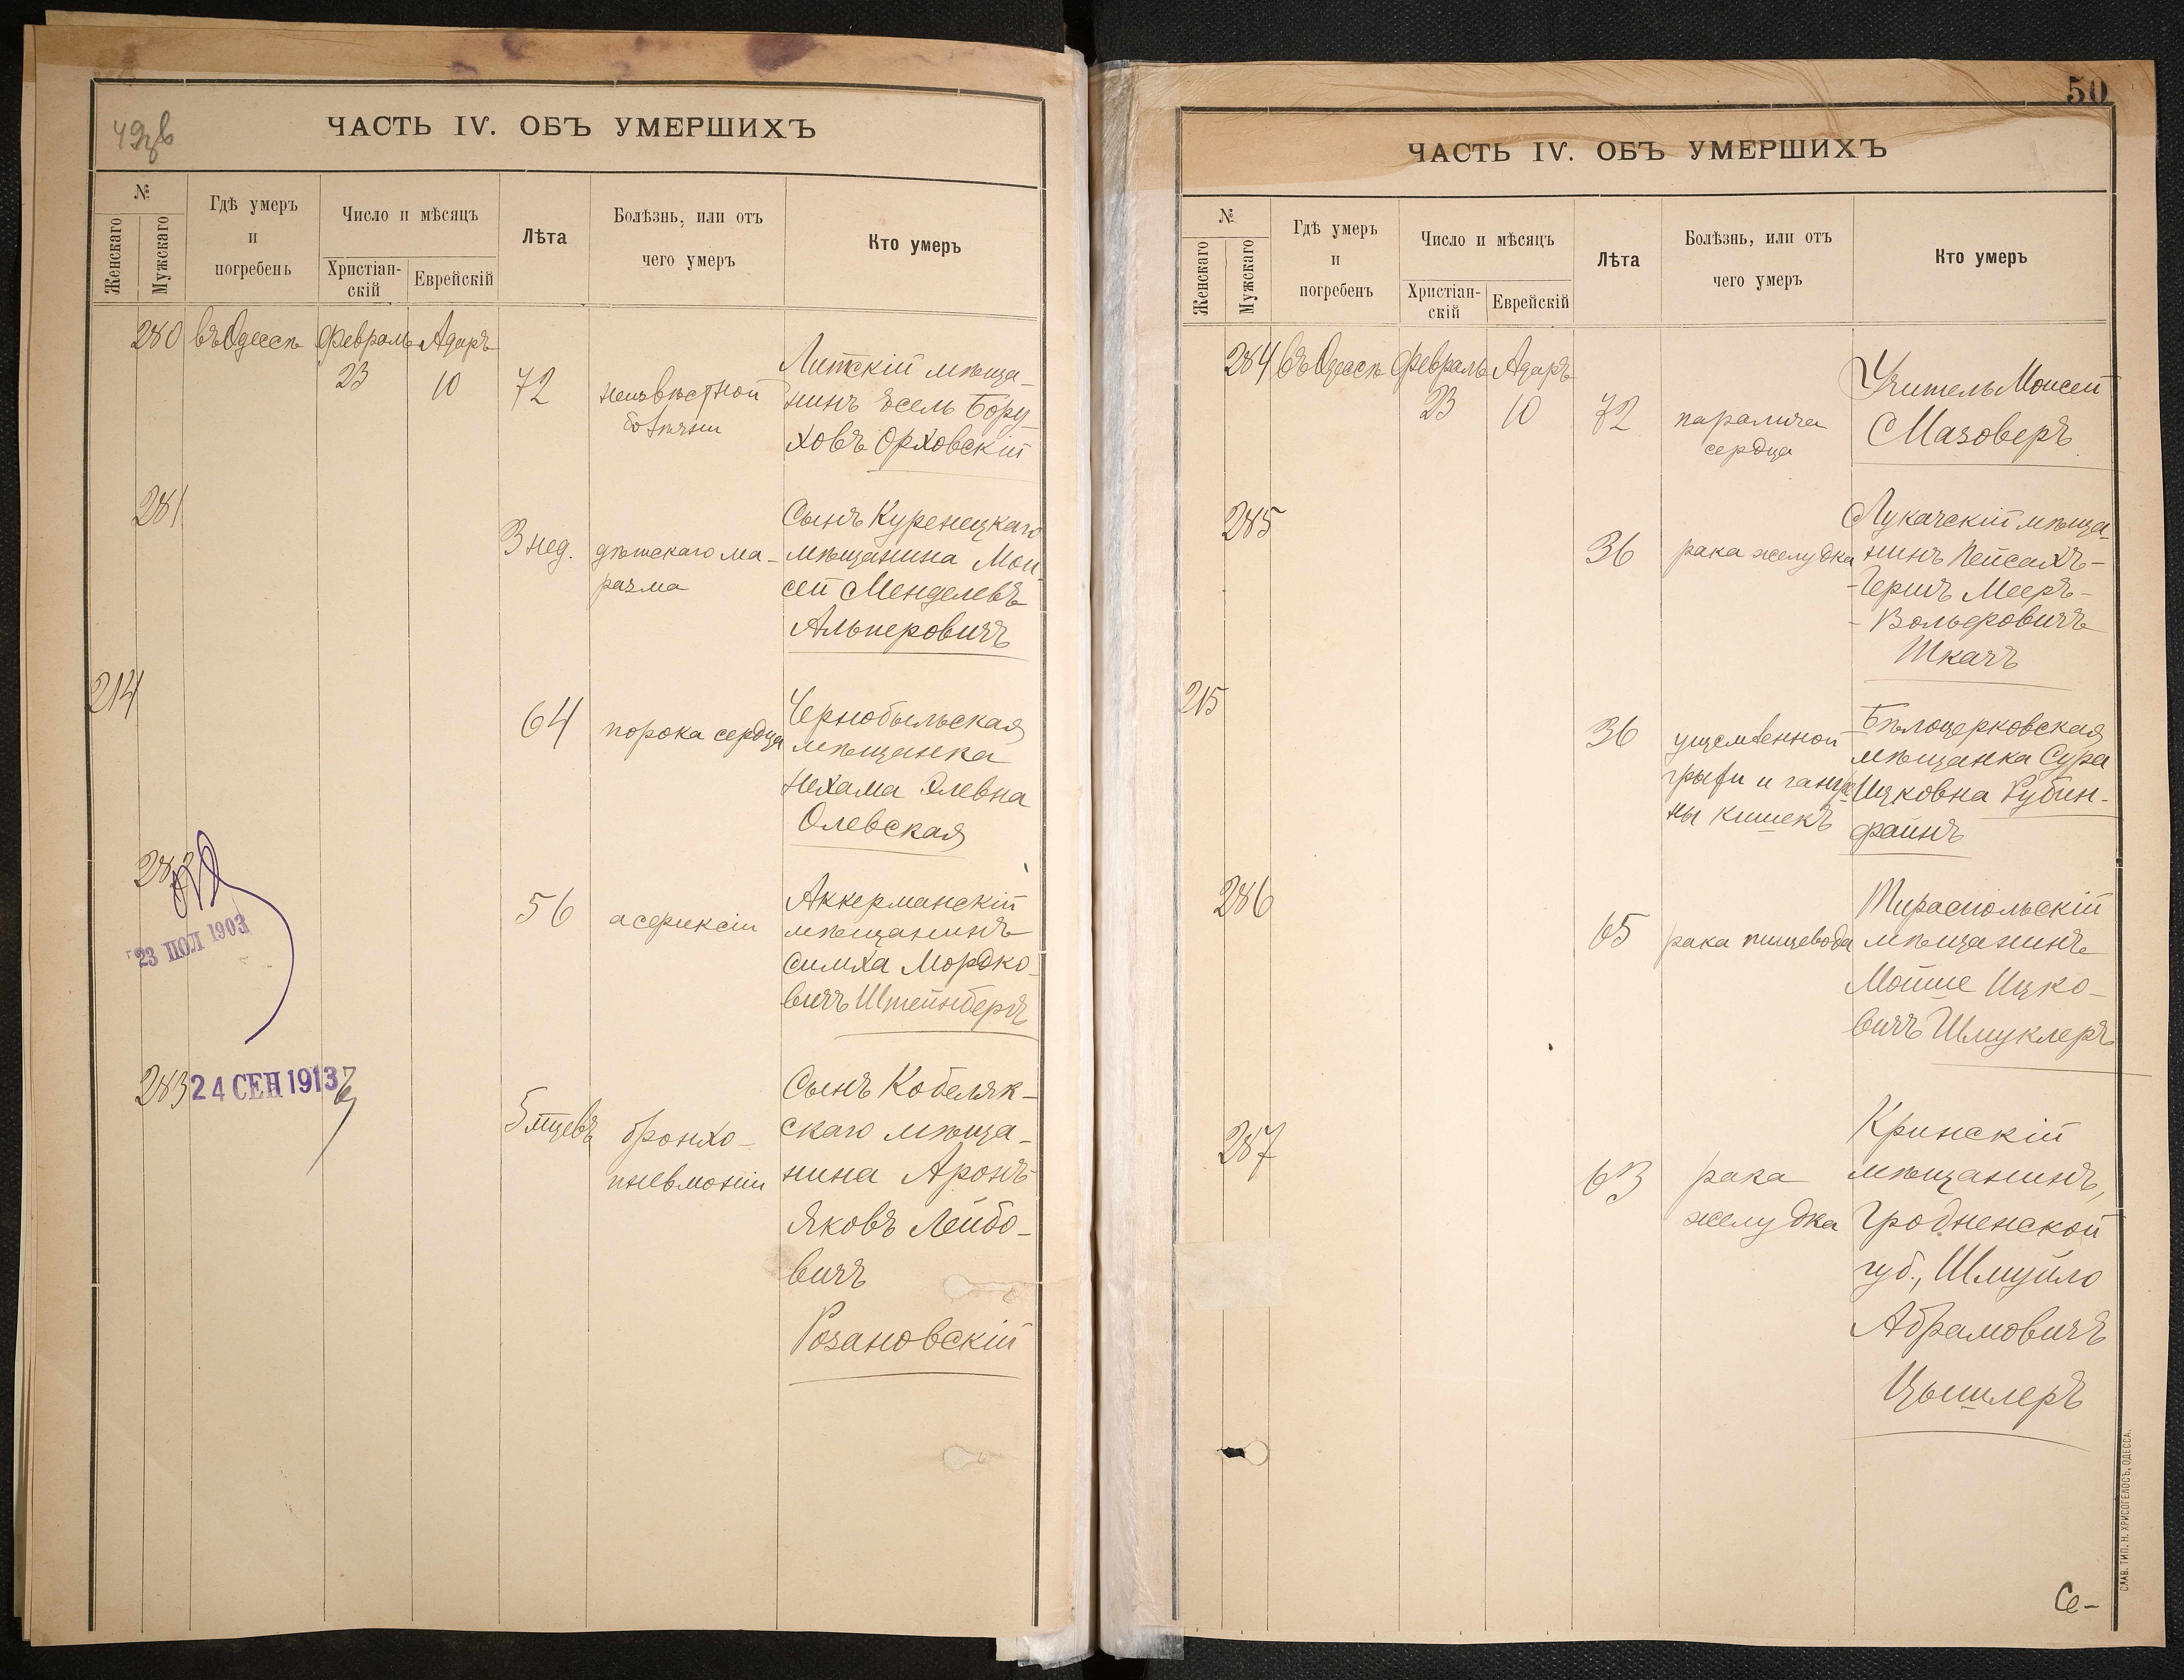 49об
ЧАСТЬ IV. ОБЪ УМЕРШИХЪ
№
Женскаго
Мужскаго
Гдѣ умеръ
и
погребенъ
Число и мѣсяцъ
Христіан-
скій
Еврейскій
Лѣта
Болѣзнь, или отъ
чего умеръ
Кто умеръ
280 въ Одессѣ Февраль Адаръ
23 10 72
неизвѣстной
болѣзни
Литскій мѣща-
нинъ Іосель Бору-
ховъ Орховскій
281
3 нед. дѣтскаго ма-
разма
Сынъ Куренецкаго
мѣщанина Мои-
сей Менделевъ
Альперовичъ
214
64 порока сердца
Чернобыльская
мѣщанка
Нехама Элевна
Олевская
282
56 асфиксіи
Аккерманскій
мѣщанинъ
Симха Мордко-
вичъ Штейнбергъ
23 ІЮЛ 1903
283
24 СЕН 1913
5 мцевъ бронхо-
пневмоніи
Сынъ Кобеляк-
скаго мѣща-
нина Аронъ-
Яковъ Лейбо-
вичъ
Розановскій
50
ЧАСТЬ IV. ОБЪ УМЕРШИХЪ
№
Женскаго
Мужскаго
Гдѣ умеръ
и
погребенъ
Число и мѣсяцъ
Христіан-
скій
Еврейскій
Лѣта
Болѣзнь, или отъ
чего умеръ
Кто умеръ
284 въ Одессѣ Февраль Адаръ
23 10 72
паралича
сердца
Учитель Моисей
Мазоверъ
285
36 рака желудка
Лукачскій мѣща-
нинъ Пейсахъ-
-Гершъ Мееръ-
-Вольфовичъ
Ткачъ
215
36 ущемленной
грыжи и гангре-
ны кишекъ
Бѣлоцерковская
мѣщанка Сура
Ицковна Рубин-
файнъ
286
65 рака пищевода
Тираспольскій
мѣщанинъ
Мойше Ицко-
вичъ Шмуклеръ
287
63 рака
желудка
Кринскій
мѣщанинъ,
Гродненской
губ., Шмуйло
Абрамовичъ
Цышлеръ
Се-
СЛАВ. ТИП. Н. ХРИСОГЕЛОСЪ, ОДЕССА.